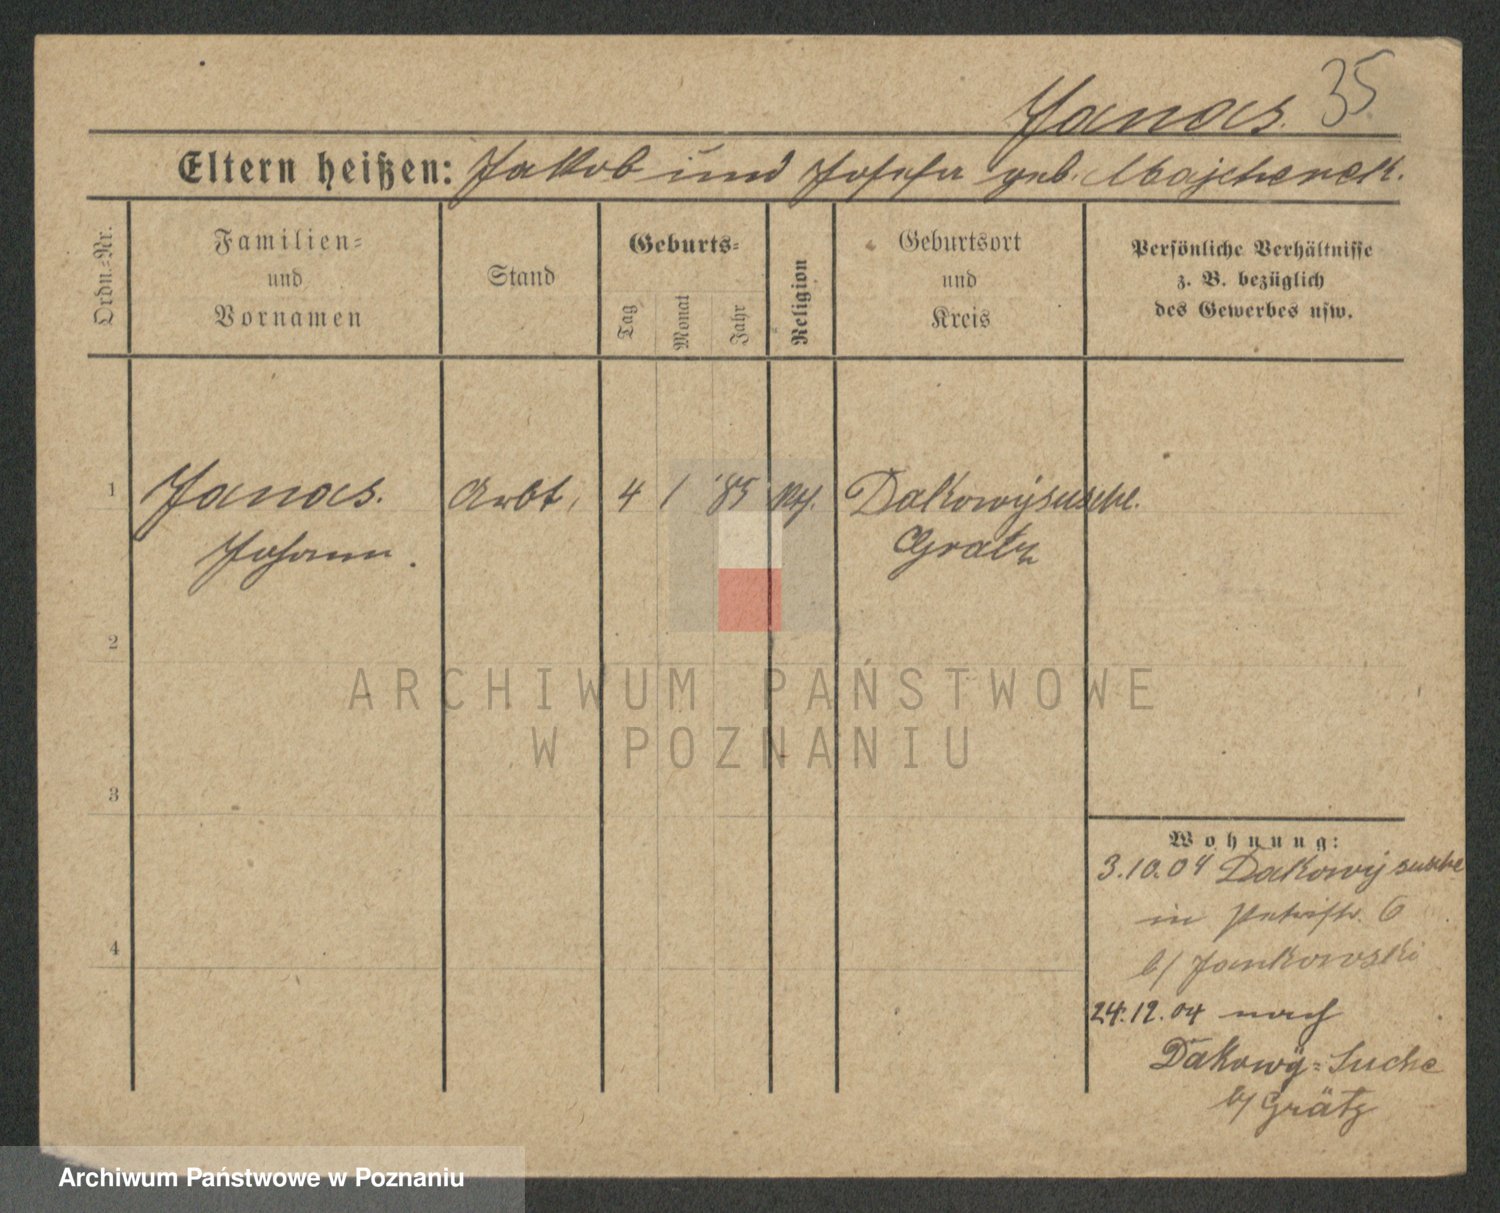 Janas. 35
Eltern heißen: Jakob und Josefa geb. Majcherek.
Ordn.-Nr.
Familien-
und
Vornamen
Stand
Geburts-
Tag
Monat
Jahr
Religion
Geburtsort
und
Kreis
Persönliche Verhältnisse
z. B. bezüglich
des Gewerbes usw.
1 Janas. Arbt. 4 1 85 kth. Dakowysuche.
Johann. Grätz
2
3
4
Wohnung:
3.10.04 Dakowy suche
in Petristr. 6
b/ Jankowski
24.12.04 nach
Dakowy-Suche
b/ Grätz
ARCHIWUM PAŃSTWOWE
W POZNANIU
Archiwum Państwowe w Poznaniu